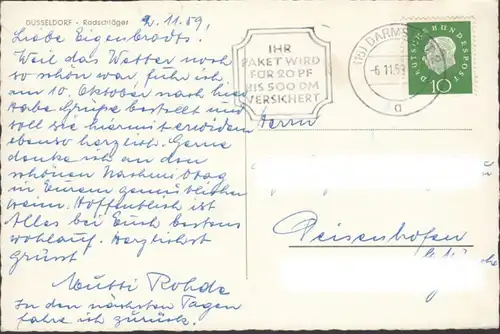 DÜSSELDORF - Radschläger
2. 11. 59,
Liebe Eigenbrodts.
Weil das Wetter noch
so schön war, fuhr ich
am 10. Oktober nach hier
Habe Grüße bestellt und
soll sie hiermit erwidern
ebenso herzlich. Gerne
denke ich an den
schönen Nachmittag
in Eurem gemütlichen
Heim. Hoffentlich ist
Alles bei Euch bestens
wohlauf. Herzlichst
grüsst
Mutti Rohde
In den nächsten Tagen
fahre ich zurück.
IHR
PAKET WIRD
FÜR 20 PF
BIS 500 DM
VERSICHERT
(16) DARMS
-6.11.59
a
DEUTSCHE BUNDESPOST
10
Herrn
Deisenhofen